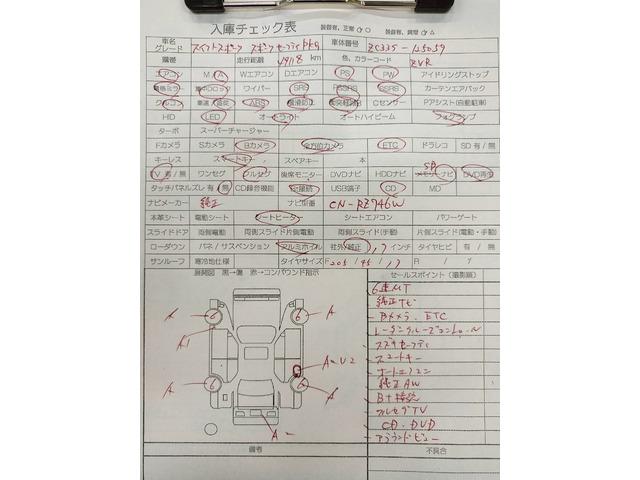 入庫チェック表
装備有、正常 ○ 装備有、異常 △
車名 グレード スイフトスポーツ スポーツセーフティPkg 車体番号 ZC33S-125059
走行距離 km 色、カラーコード ZVR
エアコン M/A Wエアコン Dエアコン PS PW アイドリングストップ
電格ミラー 集中ロック ワイパー SRS PSSRS SSRS カーテンエアバック
クルコン 車速/追従 ABS 横滑防止 衝突軽減B Cセンサー Pアシスト(自動駐車)
HID LED オートライト オートハイビーム フォグランプ
ターボ スーパーチャージャー
Fカメラ Sカメラ Bカメラ 全方位カメラ ETC ドラレコ SD 有/無
キーレス スマートキー スペアキー 本
TV 有/無 ワンセグ フルセグ 後席モニター DVDナビ HDDナビ SD メモリーナビ DVD再生
タッチパネルズレ 有/無 CD録音機能 BT接続 USB端子 CD MD
ナビメーカー 純正 ナビ型番 CN-RZ746W
本革シート 電動シート シートヒーター シートエアコン パワーゲート
スライドドア 両側電動 両側スライド片側電動 両側スライド(手動) 片側スライド(電動・手動)
ローダウン バネ/サスペンション アルミホイル 社外/純正 17 インチ タイヤヒビ 有/無
サンルーフ 寒冷地仕様 タイヤサイズ F 205/45/17 R / /
展開図 黒→傷 赤→コンパウンド指示
セールスポイント(撮影順)
6速MT
純正ナビ
Bカメラ.ETC
レーダークルーズコントロール
スズキセーフティ
スマートキー
オートエアコン
純正AW
BT接続
フルセグTV
CD.DVD
アラウンドビュー
6 A 6 A
A1
A・U2
A 6 6 A
A-
備考
不具合